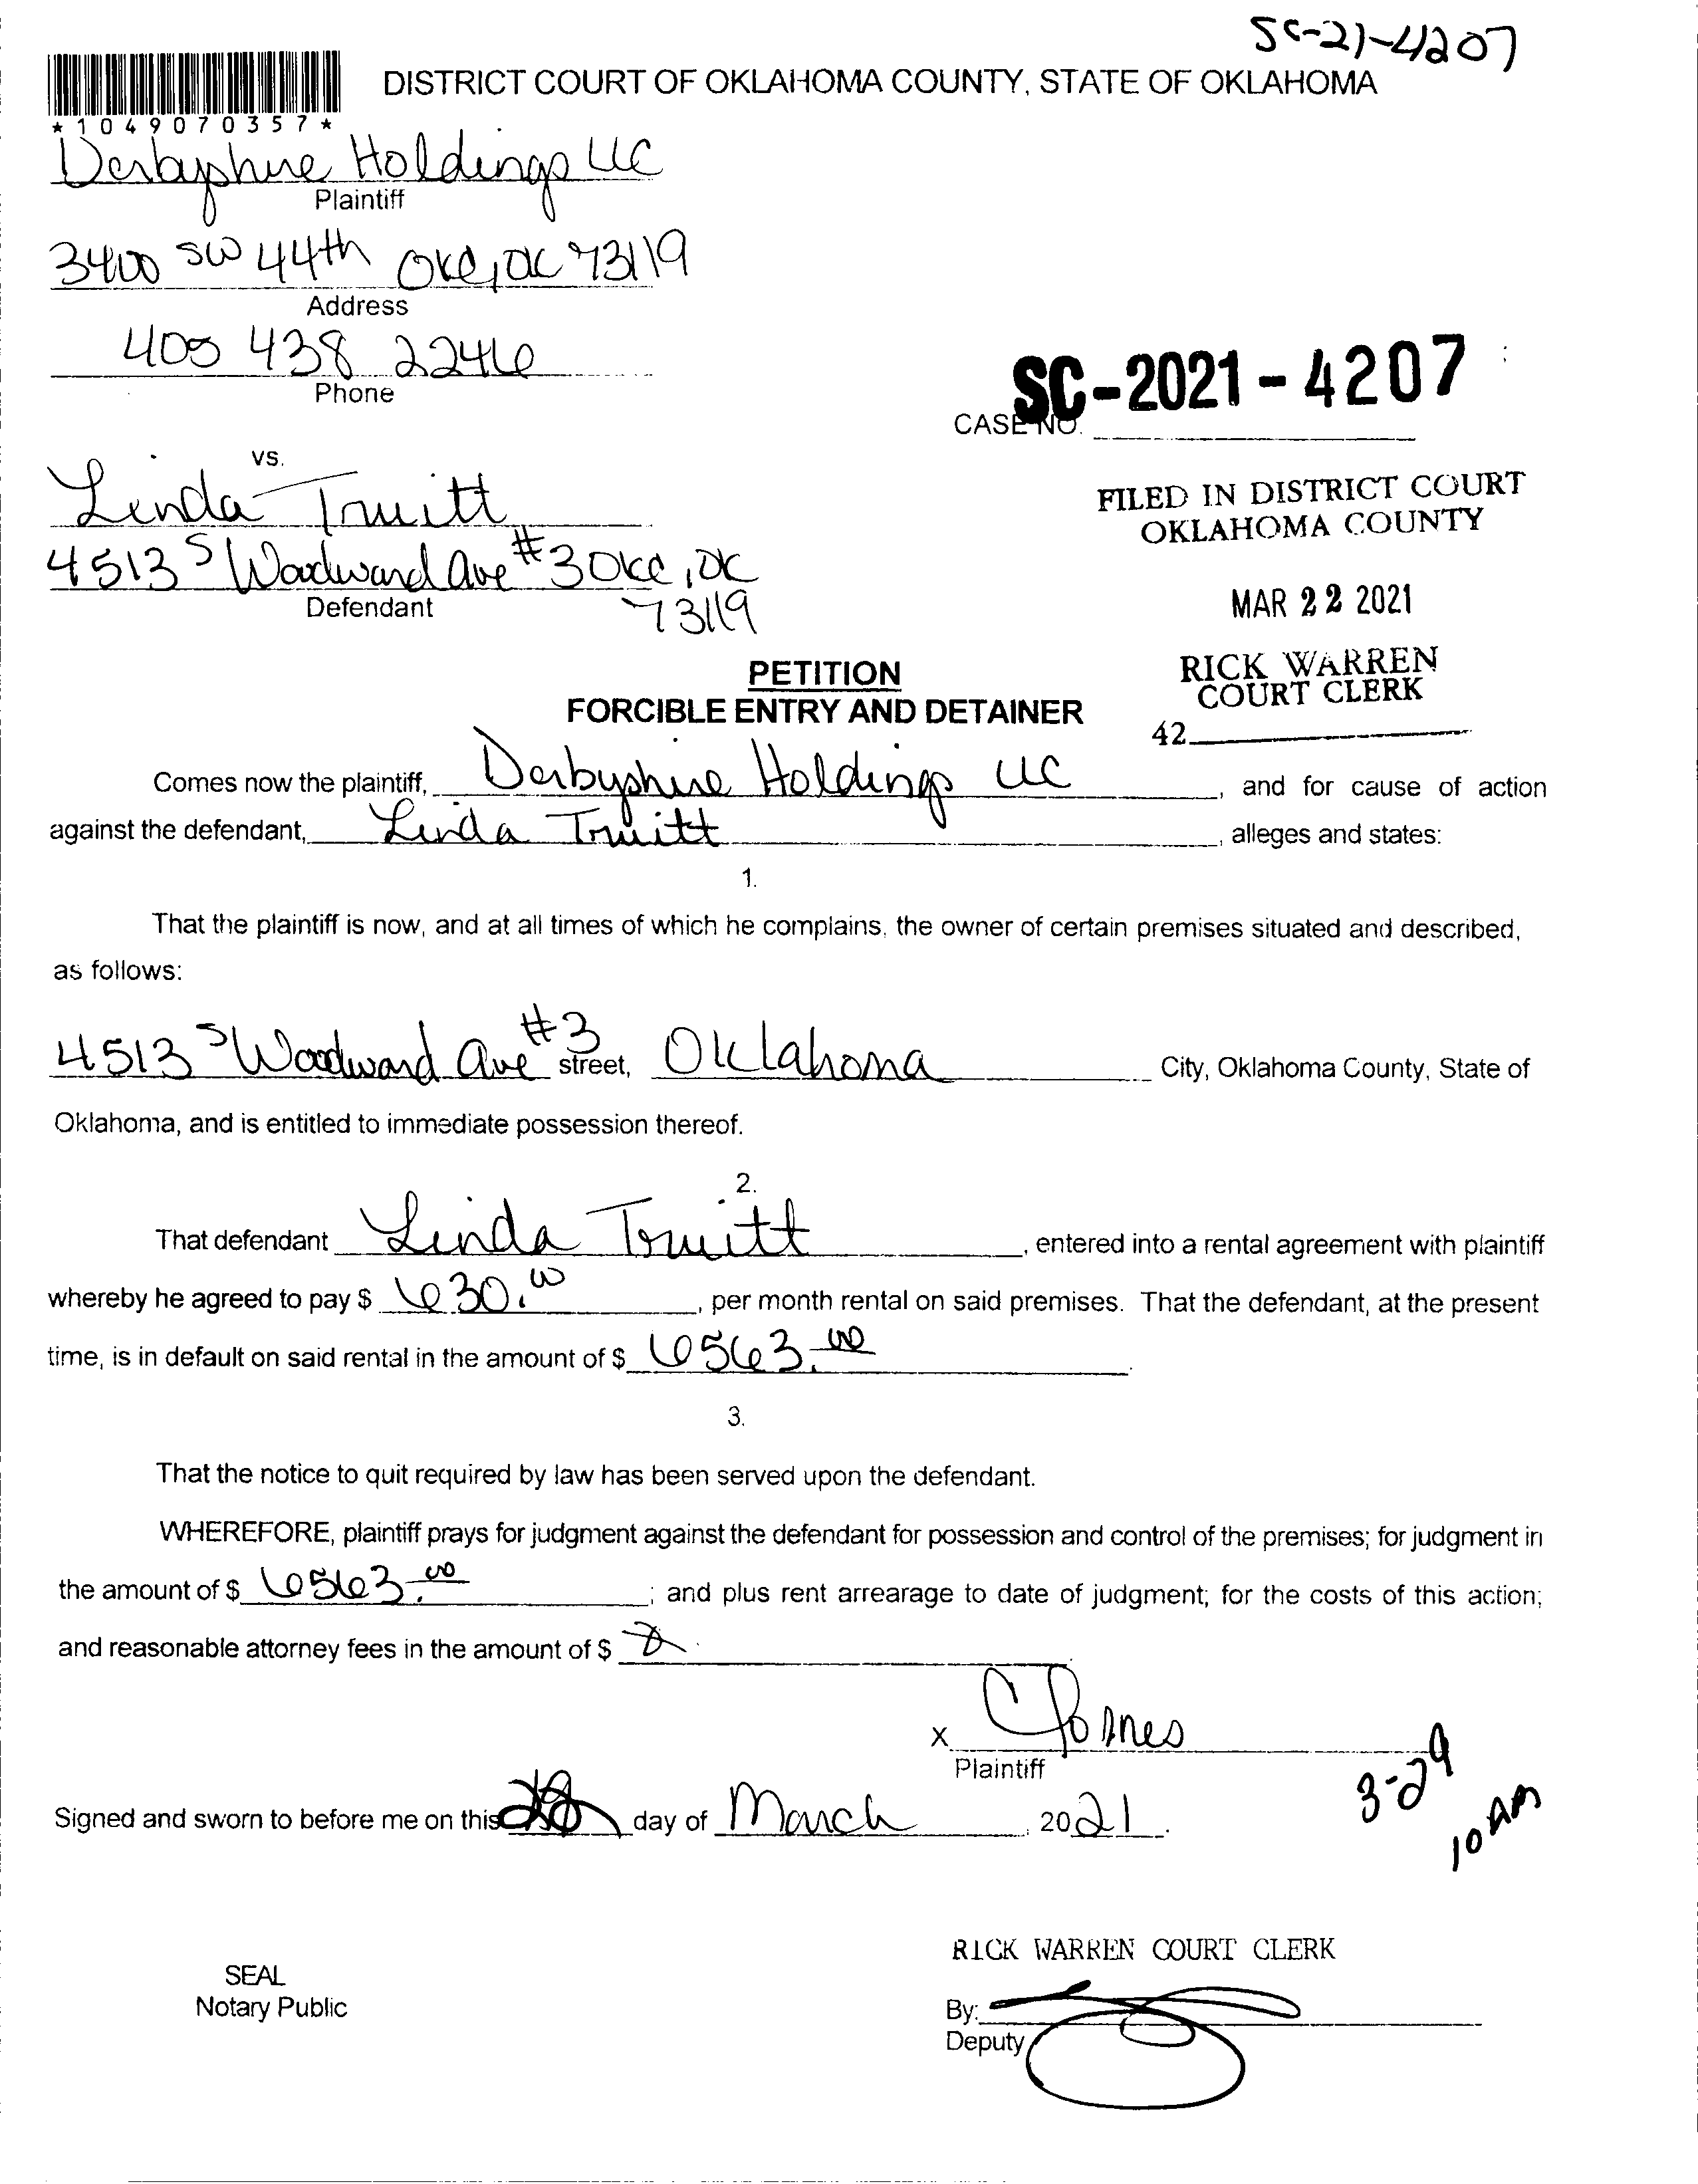 SC-21-4207
DISTRICT COURT OF OKLAHOMA COUNTY, STATE OF OKLAHOMA
*1049070357*
Derbyshire Holdings LLC
Plaintiff
3400 SW 44th OKC, OK 73119
Address
405 438 2246
Phone
SC-2021-4207
CASE NO.
vs.
Linda Truitt
4513 S Woodward Ave #3 OKC, OK
73119
Defendant
FILED IN DISTRICT COURT
OKLAHOMA COUNTY
MAR 22 2021
RICK WARREN
COURT CLERK
42
PETITION
FORCIBLE ENTRY AND DETAINER
Comes now the plaintiff, Derbyshire Holdings LLC, and for cause of action
against the defendant, Linda Truitt, alleges and states:
1.
That the plaintiff is now, and at all times of which he complains, the owner of certain premises situated and described,
as follows:
4513 S Woodward Ave #3 street, Oklahoma City, Oklahoma County, State of
Oklahoma, and is entitled to immediate possession thereof.
2.
That defendant Linda Truitt, entered into a rental agreement with plaintiff
whereby he agreed to pay $ 630.00, per month rental on said premises. That the defendant, at the present
time, is in default on said rental in the amount of $ 6563.00.
3.
That the notice to quit required by law has been served upon the defendant.
WHEREFORE, plaintiff prays for judgment against the defendant for possession and control of the premises; for judgment in
the amount of $ 6563.00; and plus rent arrearage to date of judgment; for the costs of this action;
and reasonable attorney fees in the amount of $
X
Plaintiff
3-29
10 AM
Signed and sworn to before me on this day of March, 2021.
RICK WARREN COURT CLERK
SEAL
Notary Public
By:
Deputy